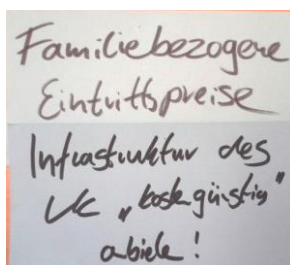 Familiebezogene
Eintrittspreise
Infrastruktur des
VK „kostegünstig"
abiete!